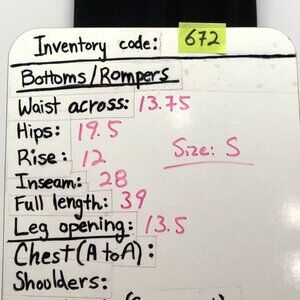 Inventory code: 672
Bottoms/Rompers
Waist across: 13.75
Hips: 19.5
Rise: 12
Size: S
Inseam: 28
Full length: 39
Leg opening: 13.5
Chest (A to A):
Shoulders: